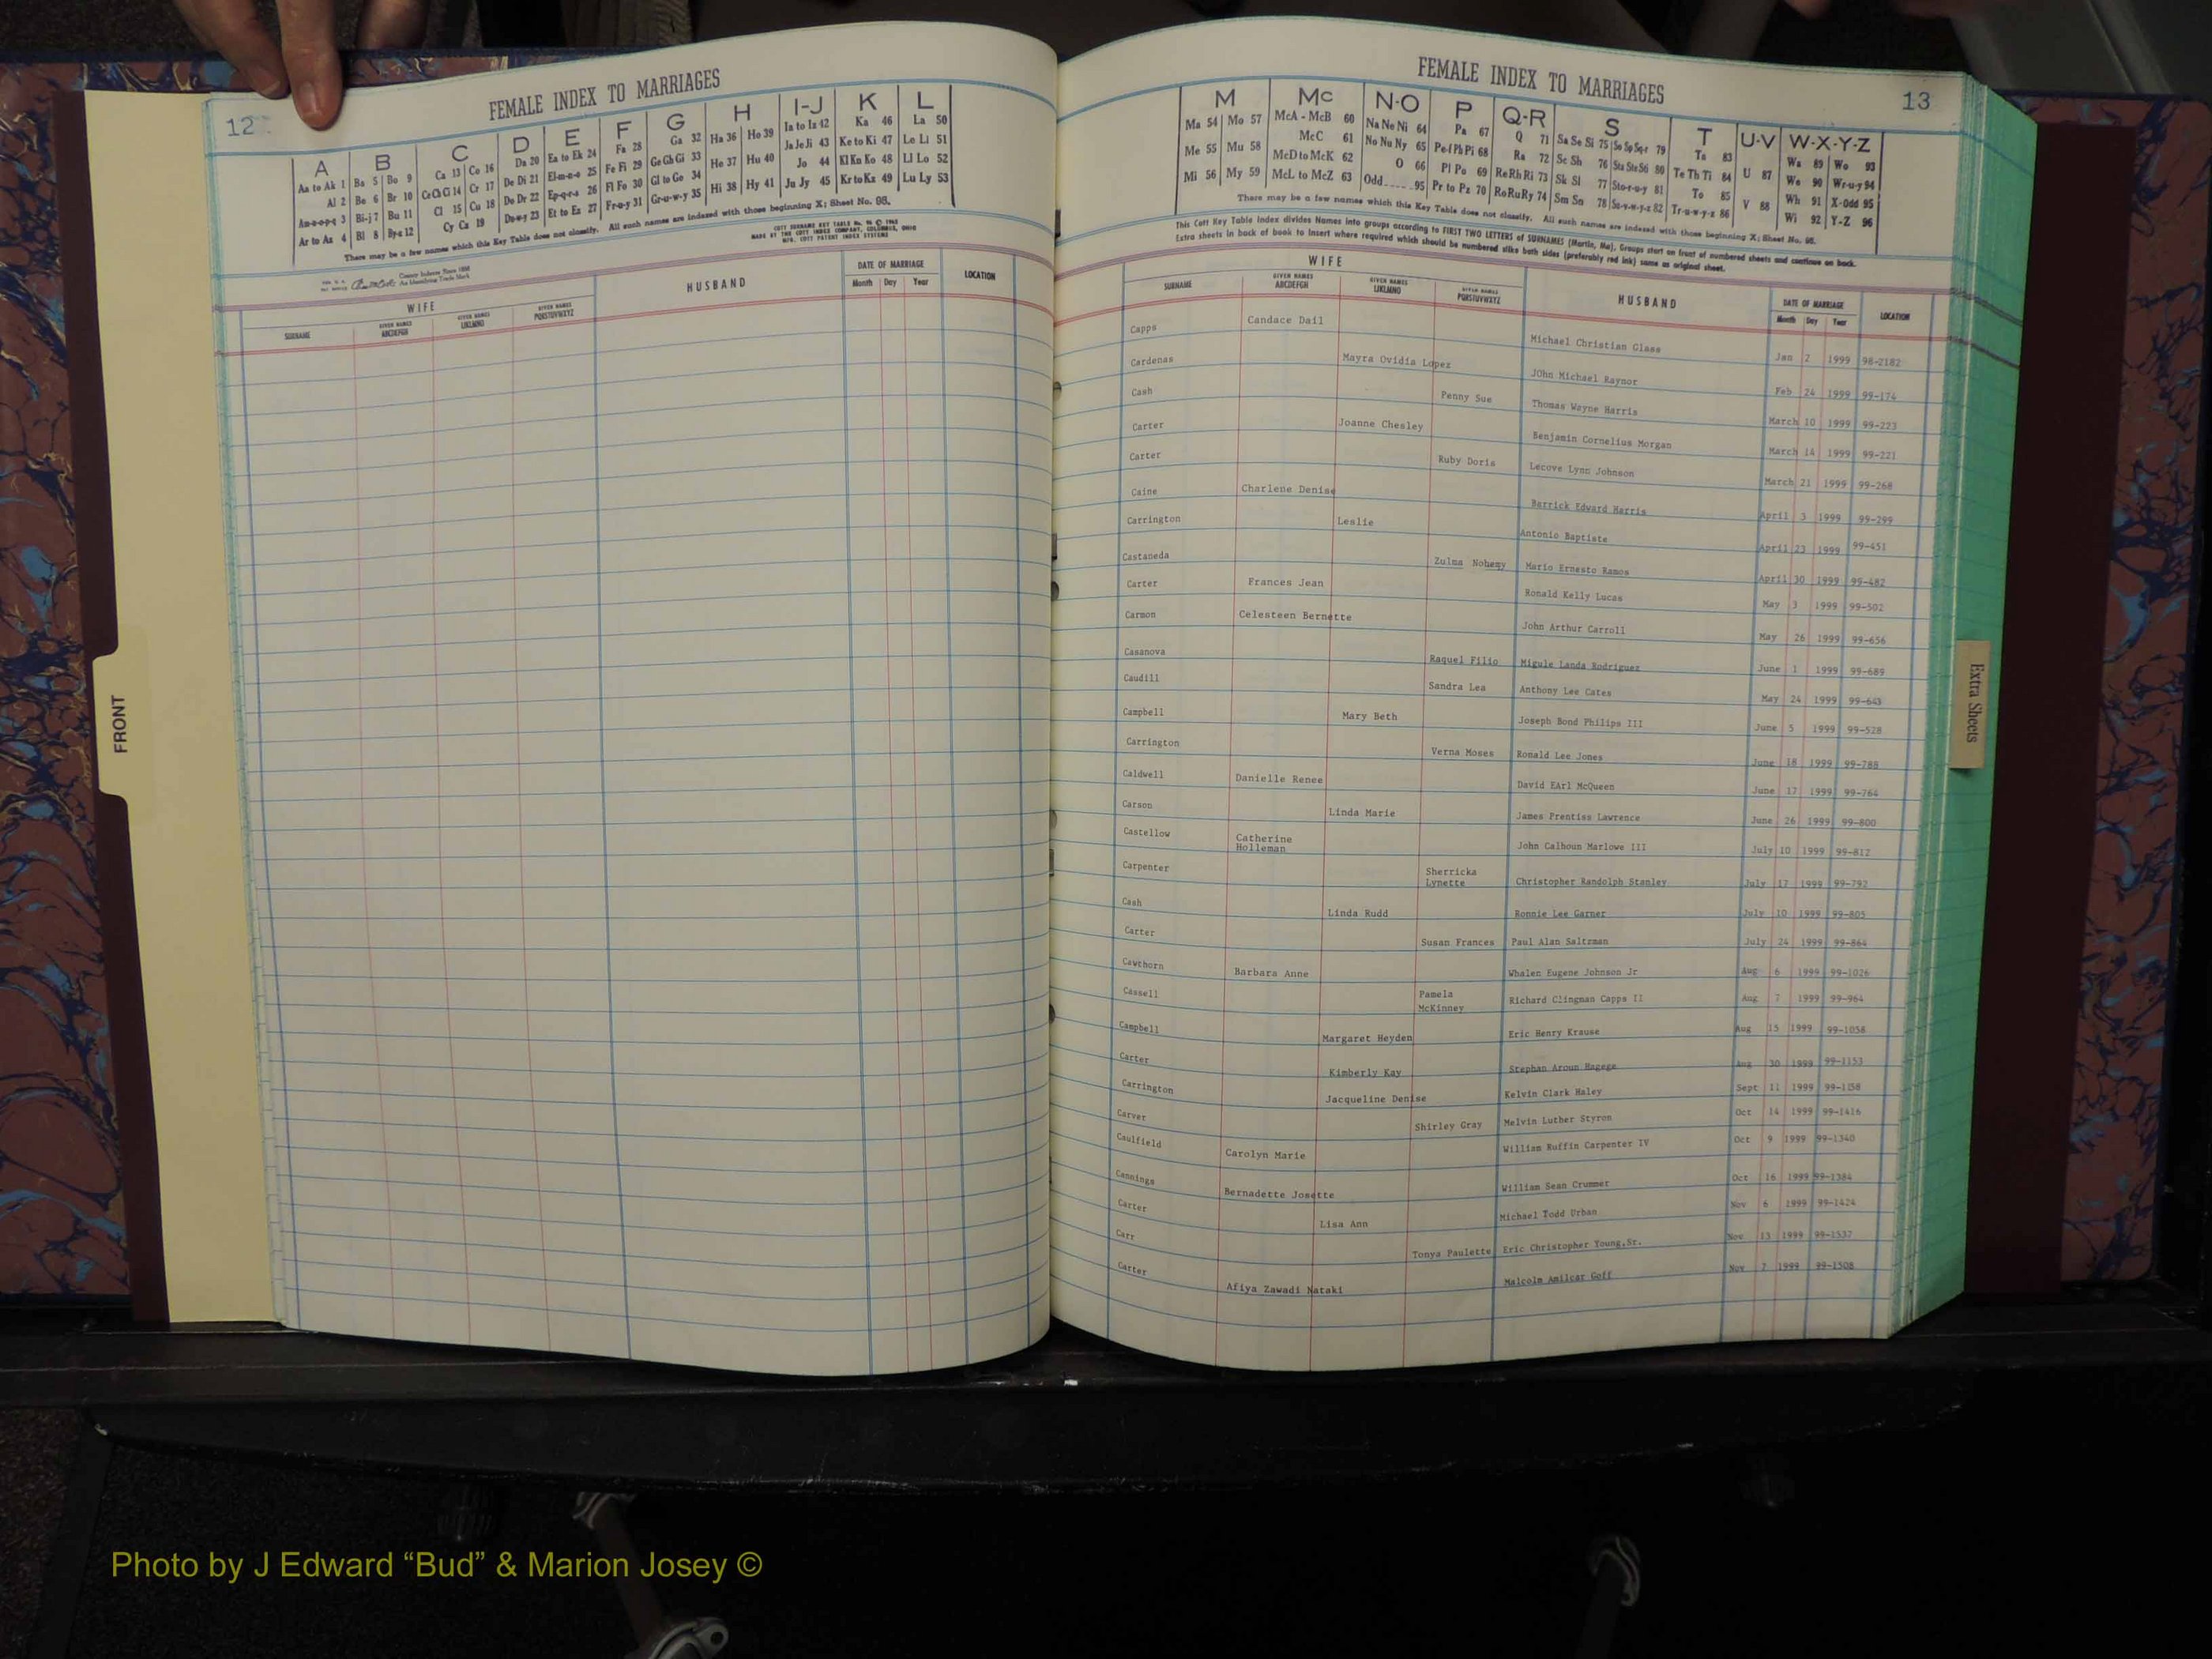 12
FEMALE INDEX TO MARRIAGES
A B C D E F G H I-J K L
Aa to Ak 1 Ba 5 Bo 9 Ca 13 Co 16 Da 20 Ea to Ek 24 Fa 28 Ga 32 Ha 36 Ho 39 Ia to Iz 42 Ka 46 La 50
Al 2 Be 6 Br 10 Ce Ch Ci 14 Cr 17 De Di 21 El-m-n-o 25 Fe Fi 29 Ge Gh Gi 33 He 37 Hu 40 Ja Je Ji 43 Ke to Ki 47 Le Li 51
Am-n-o-p-q 3 Bi-j 7 Bu 11 Cl 15 Cu 18 Do Dr 22 Ep-q-r-s 26 Fl Fo 30 Gl to Go 34 Hi 38 Hy 41 Jo 44 Kl Kn Ko 48 Ll Lo 52
Ar to Az 4 Bl 8 By-z 12 Cy Cz 19 Du-w-y 23 Et to Ez 27 Fr-u-y 31 Gr-u-w-y 35 Ju Jy 45 Kr to Kz 49 Lu Ly 53
There may be a few names which this Key Table does not classify. All such names are indexed with those beginning X; Sheet No. 95.
MADE BY THE COTT INDEX COMPANY, COLUMBUS, OHIO
WIFE HUSBAND DATE OF MARRIAGE LOCATION
SURNAME GIVEN NAMES ABCDEFGH GIVEN NAMES IJKLMNO GIVEN NAMES PQRSTUVWXYZ Month Day Year
FRONT
FEMALE INDEX TO MARRIAGES
13
M Mc N-O P Q-R S T U-V W-X-Y-Z
Ma 54 Mo 57 McA - McB 60 Na Ne Ni 64 Pa 67 Q 71 Sa Se Si 75 So Sp Sq-r 79 Ta 83 Wa 89 Wo 93
Me 55 Mu 58 McC 61 No Nu Ny 65 Pe-f Ph Pi 68 Ra 72 Sc Sh 76 Sta Ste Sti 80 Te Th Ti 84 U 87 We 90 Wr-u-y 94
Mi 56 My 59 McD to McK 62 O 66 Pl Po 69 Re Rh Ri 73 Sk Sl 77 Sto-r-u-y 81 To 85 V 88 Wh 91 X-Odd 95
McL to McZ 63 Odd 95 Pr to Pz 70 Ro Ru Ry 74 Sm Sn 78 Su-v-w-y-z 82 Tr-u-w-y-z 86 Wi 92 Y-Z 96
There may be a few names which this Key Table does not classify. All such names are indexed with those beginning X; Sheet No. 95.
This Cott Key Table Index divides Names into groups according to FIRST TWO LETTERS of SURNAMES (Martin, Ma). Groups start on front of numbered sheets and continue on back.
Extra sheets in back of book to insert where required which should be numbered alike both sides (preferably red ink) same as original sheet.
WIFE HUSBAND DATE OF MARRIAGE LOCATION
SURNAME GIVEN NAMES ABCDEFGH GIVEN NAMES IJKLMNO GIVEN NAMES PQRSTUVWXYZ Month Day Year
Capps Candace Dail Michael Christian Glass Jan 2 1999 98-2182
Cardenas Mayra Ovidia Lopez JOhn Michael Raynor Feb 24 1999 99-174
Cash Penny Sue Thomas Wayne Harris March 10 1999 99-223
Carter Joanne Chesley Benjamin Cornelius Morgan March 14 1999 99-221
Carter Ruby Doris Lecove Lynn Johnson March 21 1999 99-268
Caine Charlene Denise Barrick Edward Harris April 3 1999 99-299
Carrington Leslie Antonio Baptiste April 23 1999 99-451
Castaneda Zulma Nohemy Mario Ernesto Ramos April 30 1999 99-482
Carter Frances Jean Ronald Kelly Lucas May 3 1999 99-502
Carmon Celesteen Bernette John Arthur Carroll May 26 1999 99-656
Casanova Raquel Filio Migule Landa Rodriguez June 1 1999 99-689
Caudill Sandra Lea Anthony Lee Cates May 24 1999 99-643
Campbell Mary Beth Joseph Bond Philips III June 5 1999 99-528
Carrington Verna Moses Ronald Lee Jones June 18 1999 99-788
Caldwell Danielle Renee David EArl McQueen June 17 1999 99-764
Carson Linda Marie James Prentiss Lawrence June 26 1999 99-800
Castellow Catherine Holleman John Calhoun Marlowe III July 10 1999 99-812
Carpenter Sherricka Lynette Christopher Randolph Stanley July 17 1999 99-792
Cash Linda Rudd Ronnie Lee Garner July 10 1999 99-805
Carter Susan Frances Paul Alan Saltzman July 24 1999 99-864
Cawthorn Barbara Anne Whalen Eugene Johnson Jr Aug 6 1999 99-1026
Cassell Pamela McKinney Richard Clingman Capps II Aug 7 1999 99-964
Campbell Margaret Heyden Eric Henry Krause Aug 15 1999 99-1058
Carter Kimberly Kay Stephan Aroun Hagege Aug 30 1999 99-1153
Carrington Jacqueline Denise Kelvin Clark Haley Sept 11 1999 99-1158
Carver Shirley Gray Melvin Luther Styron Oct 14 1999 99-1416
Caulfield Carolyn Marie William Ruffin Carpenter IV Oct 9 1999 99-1340
Cannings Bernadette Josette William Sean Crummer Oct 16 1999 99-1384
Carter Lisa Ann Michael Todd Urban Nov 6 1999 99-1424
Carr Tonya Paulette Eric Christopher Young,Sr. Nov 13 1999 99-1537
Carter Afiya Zawadi Nataki Malcolm Amilcar Goff Nov 7 1999 99-1508
Extra Sheets
Photo by J Edward “Bud” & Marion Josey ©